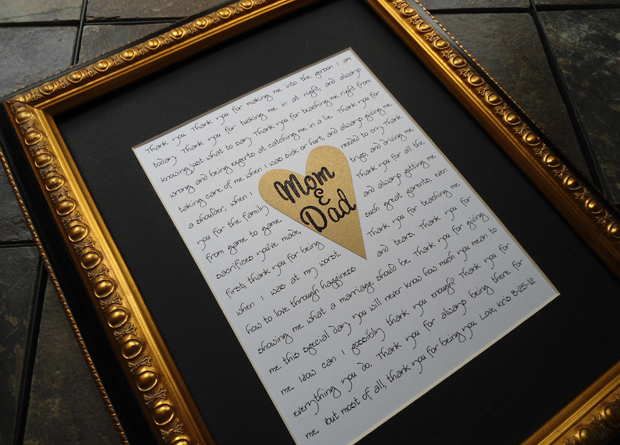 Thank you. Thank you for making me into the person I am
today. Thank you for tucking me in at night, and always
knowing just what to say. Thank you for teaching me right from
wrong and being experts at catching me in a lie. Thank you for
taking care of me when I was sick or hurt, and always giving me
a shoulder, when I needed to cry. Thank
you for the family trips and driving me
from game to game. Thank you for all the
sacrifices you've made, and always putting me
first; thank you for being such great parents, even
when I was at my worst. Thank you for teaching me
how to love through happiness and tears. Thank you for
showing me what a marriage should be. Thank you for giving
me this special day. you will never know how much you mean to
me. How can I possibly thank you enough? Thank you for
everything you do. Thank you for always being there for
me, but most of all, thank you for being you. Love, Kris 8-25-12
Mom
&
Dad